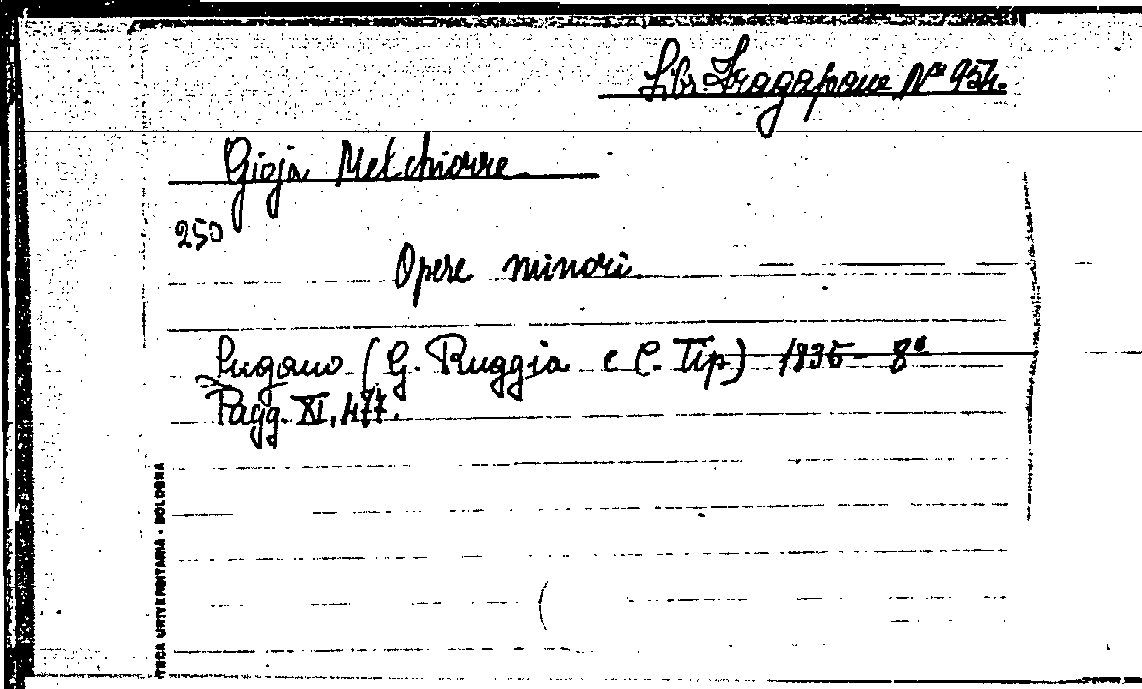 Libr Fragapane Nº 954.
Gioja Melchiorre
250
Opere minori
Lugano (G. Ruggia e C. Tip) 1835 - 8º
Pagg. XI, 477.
TECA UNIVERSITARIA - BOLOGNA